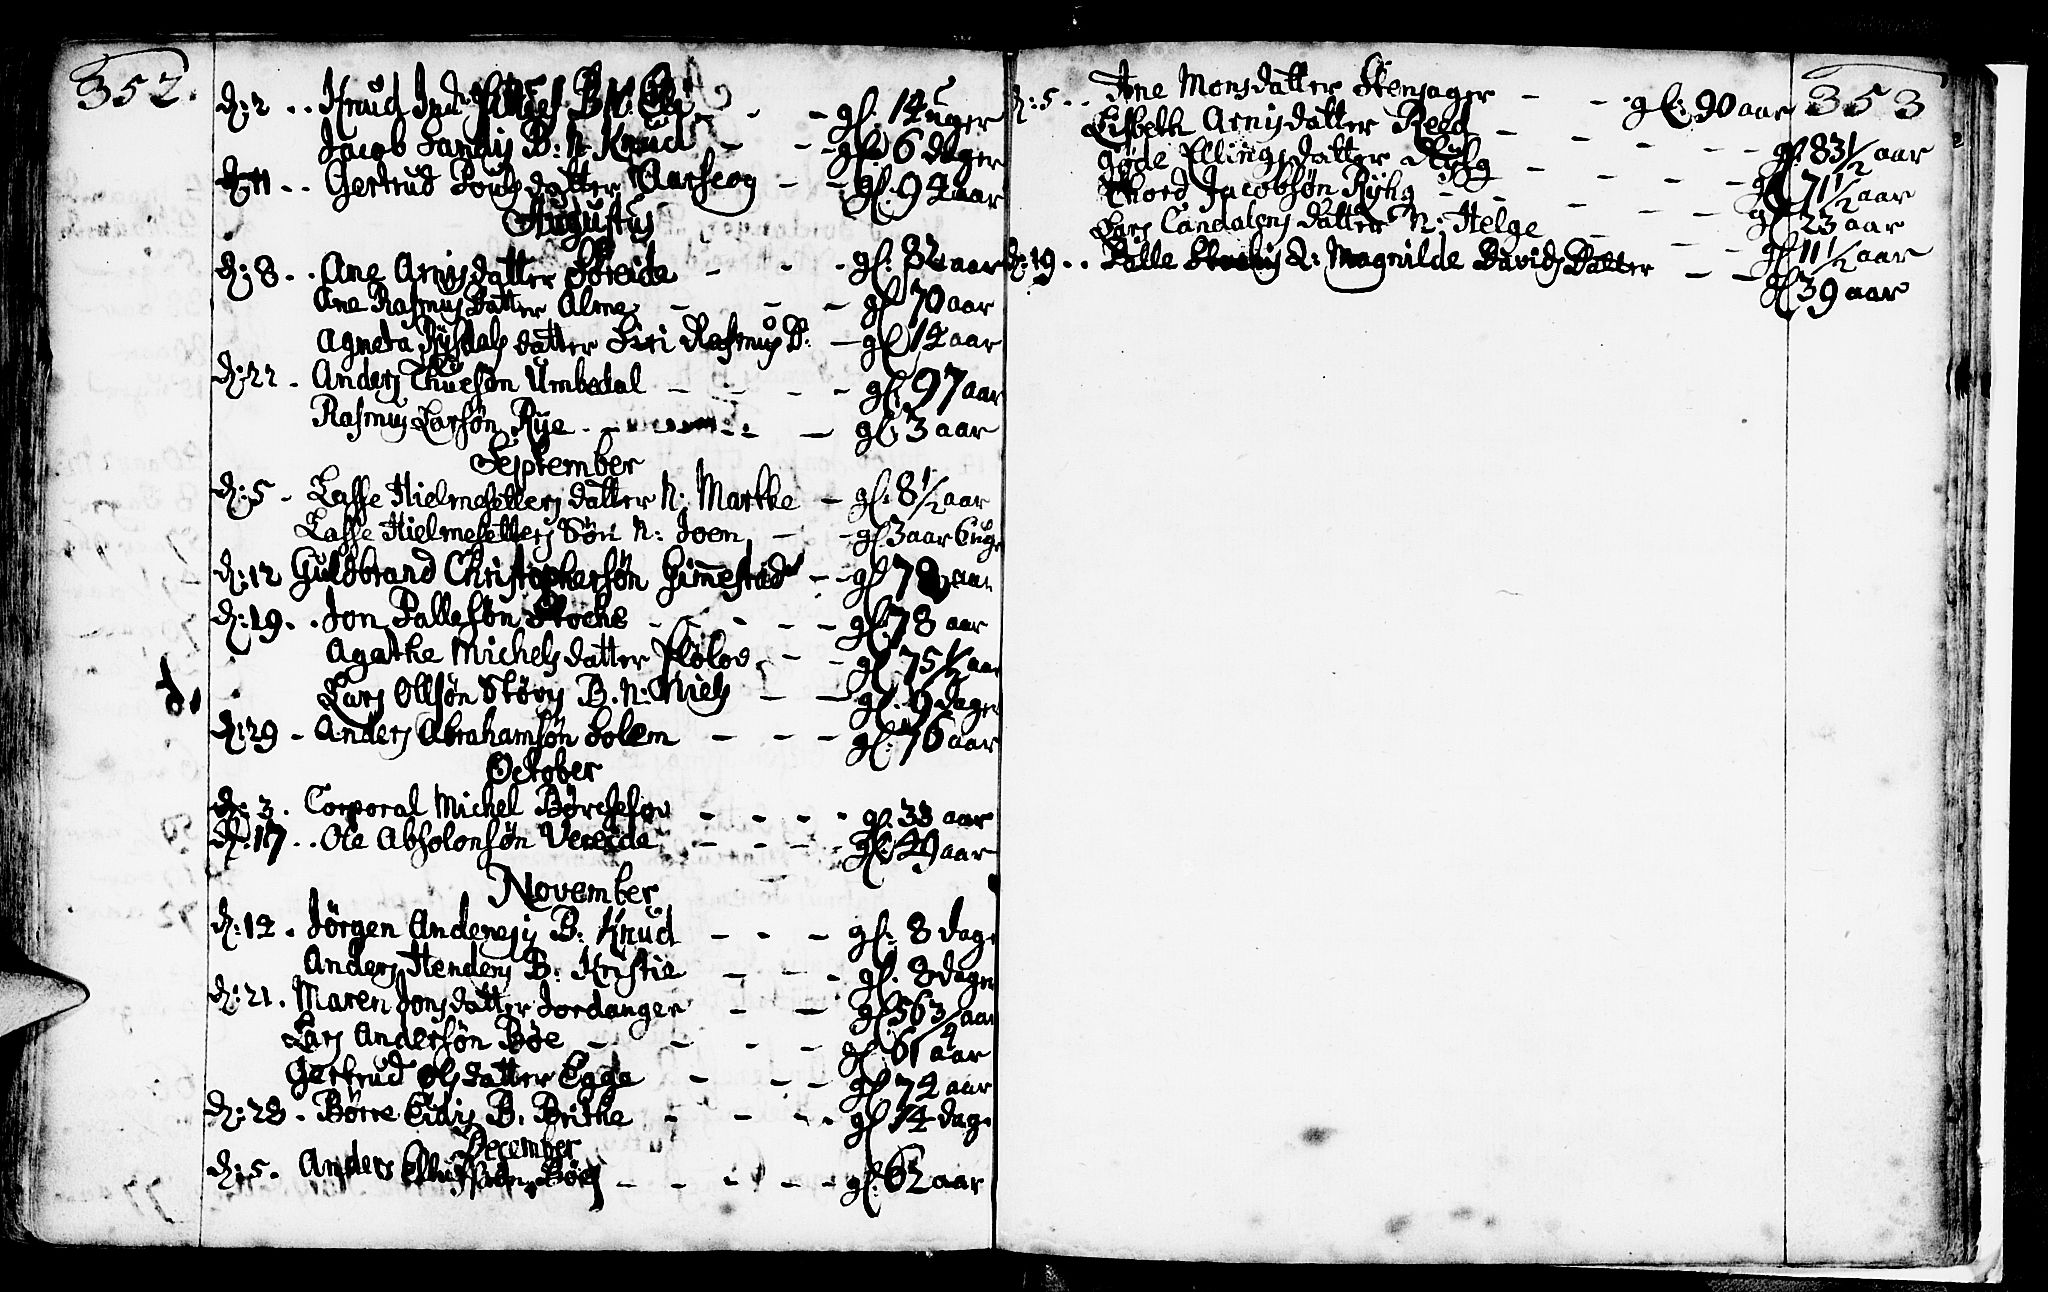 352.
d: 2 .. Knud Ind B: N: - - gl. 14 uger
Jacob Sandis B: N: Knud - - gl. 6 dager
d: 11 .. Gertrud Pouls datter Aarseog - - gl. 94 aar
Augustus
d: 8 .. Ane Arnis datter Søreide - - - gl: 82 aar
Ane Rasmus Datter Alme - - - gl 70 aar
Agneta Rysdals datter Siri Rasmus D: - gl 14 aar
d: 22 . Anders Thuesøn Umbedal - - - - gl. 97 aar
Rasmus Larsøn Rye . - - - gl. 3 aar
September
d: 5 - Lasse Hielmesetters datter N: Marthe - gl: 8 1/2 aar
Lasse Hielmesetters Søn N: Joen - - gl 3 aar 6 uge
d: 12 Guldbrand Christophersøn Gimmestad - - gl 78 aar
d: 19 . . Jon Pallesøn Stoche - - - - gl. 78 aar
Agathe Michels datter Fløloe - - gl. 75 1/2 aar
d. Lars Ollsøn Støvis B. N: Niels - - gl. 9 dage
d: 29 - Anders Abrahamsøn Solem - - - gl: 76 aar
October
d: 3 . Corporal Michel - - - - gl. 33 aar
d: 17 . . Ole Absolonsøn Vereide - - - - gl: 49 aar
November
d: 12 . Jørgen Andenesis B: Knud - - - gl: 8 dage
Anders Hendens B: Kristie - - - gl. 8 dage
d: 21 . Maren Jons datter Jordanger - - gl 56 3/4 aar
Lars Andersøn Bøe - - - - gl 61 aar
Gertrud Ols datter Egge - - - gl 74 aar
d: 28 . Børre Eidis B. Brithe - - - . gl 14 dage
December
d: 5 . Anders - - - - - gl: 62 aar
353
d: 5 .. Ane Mons datter Stensager - - gl: 90 aar
Lisbeth Arnis datter Reed - - - - gl. 83 1/2 aar
Gøde Ellings datter - - - - gl 71 1/2 aar
Thord Jacobsøn Ryhg - - - - gl 23 aar
Lars Candalens datter N: Helge - - - gl 11 1/2 aar
d: 19 . . Palle Q: Magnilde Davids Datter - - gl 39 aar